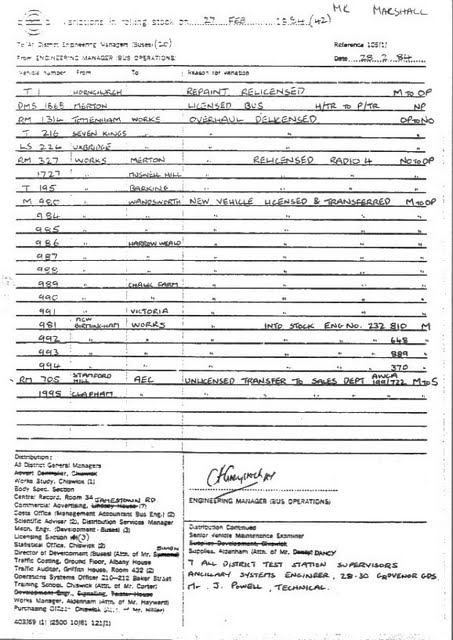 MR MARSHALL
variations in rolling stock on 27 FEB 1984 (42)
To All District Engineering Managers (Buses) (20)
Reference 105(1)
From ENGINEERING MANAGER (BUS OPERATIONS)
Date 28.2.84
Vehicle Number From To Reason for variation
T 1 HORNCHURCH REPAINT RELICENSED M TO OP
DMS 1868 MERTON LICENSED BUS H/TR TO P/TR NP
RM 1314 TOTTENHAM WORKS OVERHAUL DELICENSED OP TO NO
T 216 SEVEN KINGS " " " "
LS 224 UXBRIDGE " " " "
RM 327 WORKS MERTON " RELICENSED RADIO 4 NO TO OP
1727 " MUSWELL HILL " " "
T 195 " BARKING " " "
M 980 WANDSWORTH NEW VEHICLE LICENSED & TRANSFERRED M TO OP
984 " " " " "
985 " " " " "
986 " HARROW WEALD " " " "
987 " " " " " "
988 " " " " " "
989 " CHALK FARM " " " "
990 " " " " " "
991 " VICTORIA " " " "
981 MCW BIRMINGHAM WORKS " INTO STOCK ENG NO. 232 810 M
992 " " " " " 648 "
993 " " " " " 889 "
994 " " " " " 370 "
RM 705 STAMFORD HILL AEC UNLICENSED TRANSFER TO SALES DEPT AWCA 199/722 M TO S
1995 CLAPHAM " " " " "
ENGINEERING MANAGER (BUS OPERATIONS)
Distribution:
All District General Managers
Advert Controller, Chiswick
Works Study, Chiswick (1)
Body Spec. Section
Central Record, Room 34 JAMESTOWN RD
Commercial Advertising, Lindsey House (7)
Costs Office (Management Accountant Bus Eng.) (2)
Scientific Adviser (2), Distribution Services Manager
Mech. Engr. (Development - Buses) (3)
Licensing Section (3)
Statistical Office, Chiswick (2)
Director of Development (Buses) (Attn. of Mr.
Traffic Costing, Ground Floor, Albany House
Traffic Auditor, Griffith House, Room 432 (2)
Operations Systems Officer 210-212 Baker Street
Training School, Chiswick (Attn. of Mr. Carter)
Development Engr., Signaling,
Works Manager, Aldenham (Attn. of Mr. Hayward)
Purchasing Office Chiswick (Attn. of Mr.
403/69 (1) (2500 10/81 121/1)
Distribution Continued
Senior Vehicle Maintenance Examiner
Supplies Development, Chiswick
Supplies, Aldenham (Attn. of Mr. DANCY)
7 ALL DISTRICT TEST STATION SUPERVISORS
ANCILLARY SYSTEMS ENGINEER, 28-30 GROVENOR GDS
Mr. J. POWELL, TECHNICAL.